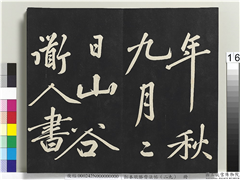 年秋
九月二
日山谷
衜人書
16